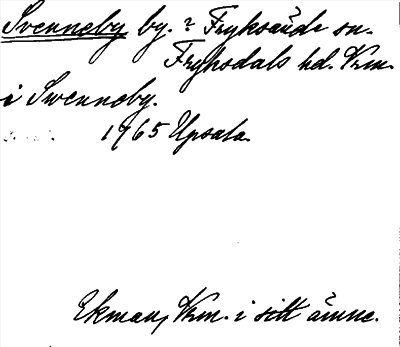 Svenneby by. ? Fryksände sn.
Fryksdals hd. Vrm.
i Swenneby.
1765 Upsala
Ekman, Vrm. i sitt ämne.